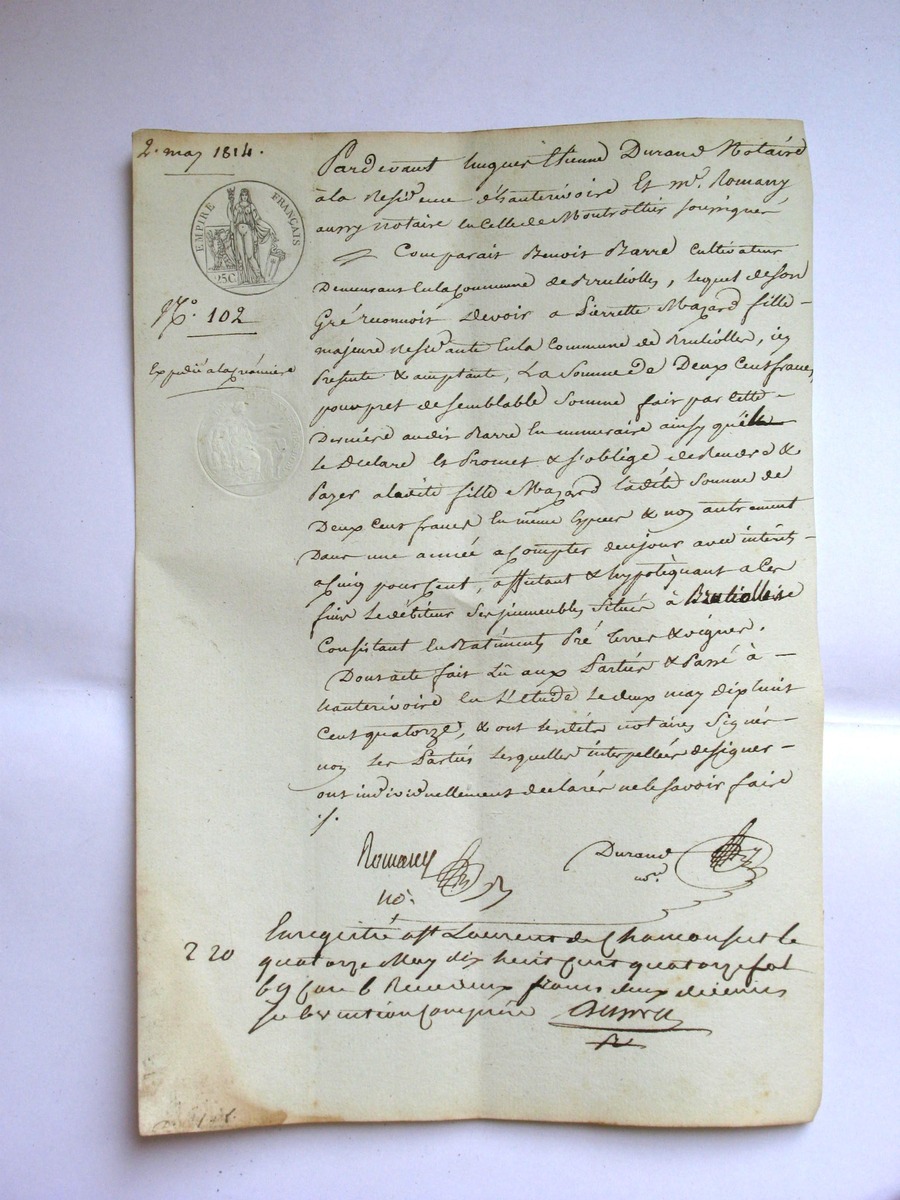 2. may 1814.
EMPIRE FRANÇAIS
25C
N.º 102
Expédié à la créancière
Pardevant hugues Etienne Durand Notaire
à la Resid.ence d'hauterivoire Et m.r Romany
aussy notaire en Celle de Montrottier soussignés
Comparait Benoit Barre Cultivateur
Demeurant En la Commune de Brulioles, lequel de son
Gré reconnoit Devoir a Pierrette Mazard fille
majeure Resid.ante En la Commune de Brulioles, icy
Presente & acceptante, La Somme De Deux Cent francs
pour pret de semblable Somme fair par Cette
Derniere audit Barre En numeraire ainsy qu'il
Le Declare Et Promet & s'oblige de Rendre &
Payer a ladite fille Mazard ladite Somme de
Deux Cent francs En même Especes & non autrement
Dans une année a Compter de ce jour avec intérêts
a Cinq pour Cent, affectant & hypotéquant a Ces
fins Le débiteur Ses immeubles Situés à Brulliolles
Consistant En Batiments Pré Terres & vignes.
Dont acte fait Lû aux Parties & Passé à
hauterivoire En L'etude Le deux may dix huit
Cent quatorze, & ont lesdits notaires Signés
non Les Parties Lesquelles interpellées de signer
ont individuellement declarés ne le savoir faire
./.
Romany
no.
Durand
no.re
2 20
Enregistré a St Laurent de Chamousset le
quatorze May dix huit cent quatorze fol
69 Case 6 Recu deux francs deux decimes
Subvention Comprise